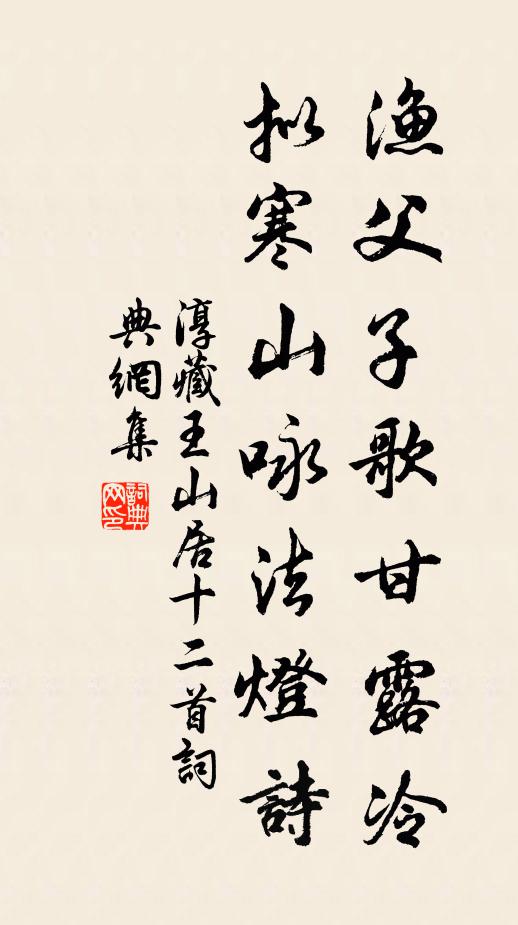 漁父子歌甘露冷
拟寒山咏法燈詩
淳藏王山居十二首詞
典網集
詞典網印